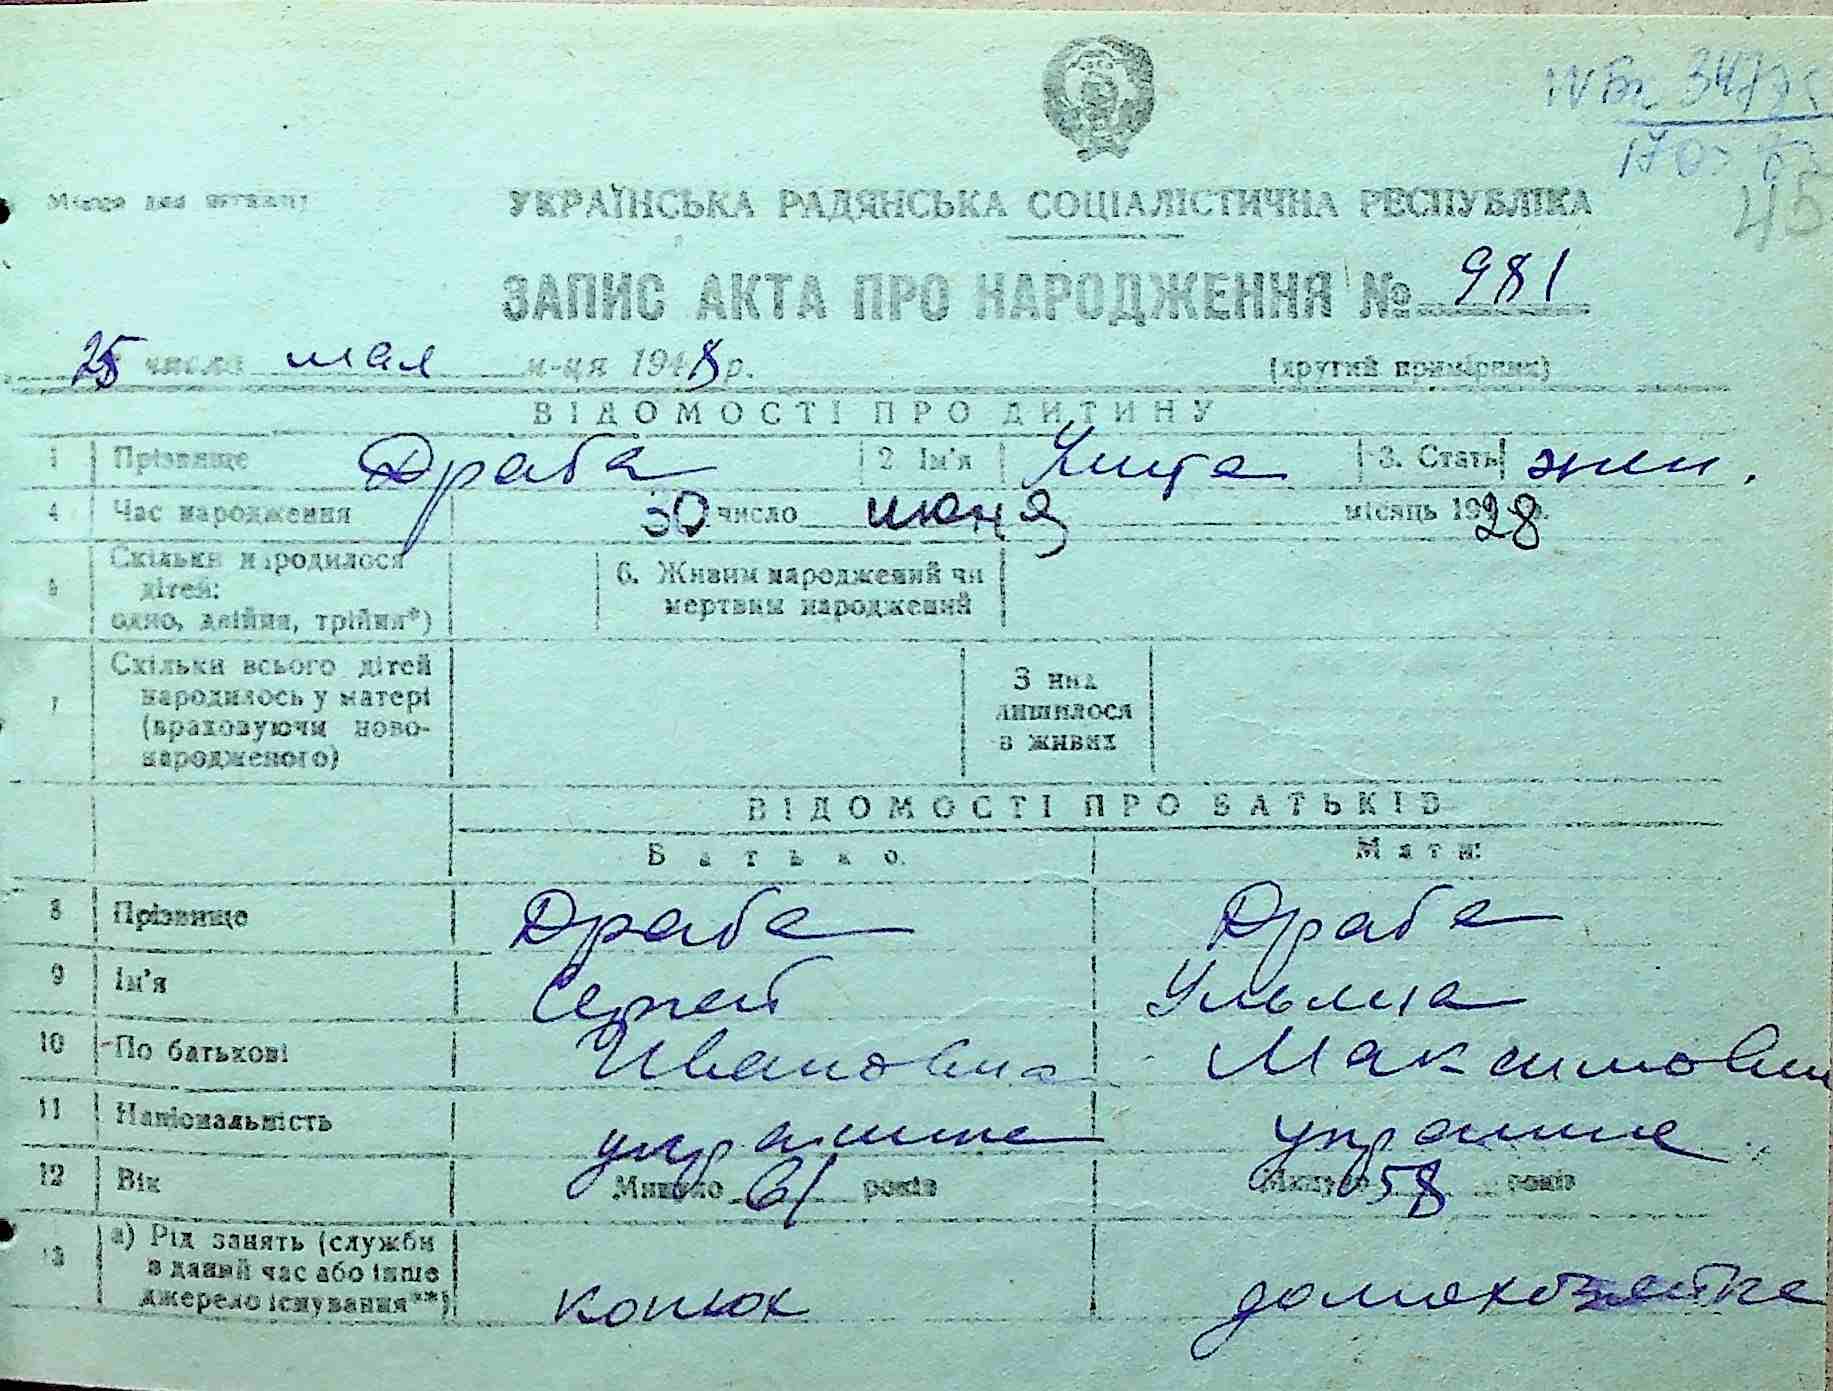 34795
45
Місце для штампу
УКРАЇНСЬКА РАДЯНСЬКА СОЦІАЛІСТИЧНА РЕСПУБЛІКА
ЗАПИС АКТА ПРО НАРОДЖЕННЯ № 981
25 числа мая м-ця 1948 р. (другий примірник)
ВІДОМОСТІ ПРО ДИТИНУ
1 Прізвище Драба 2 Ім'я 3. Стать жен.
4 Час народження 30 число июня місяць 1928 р.
5 Скільки народилося дітей: одно, двійня, трійня*) 6. Живим народжений чи мертвим народжений
7 Скільки всього дітей народилось у матері (враховуючи новонародженого) З них лишилося в живих
ВІДОМОСТІ ПРО БАТЬКІВ
Батько: Мати:
8 Прізвище Драба Драба
9 Ім'я Сергей Ульяна
10 По батькові Ивановна Максимовна
11 Національність украинец украинка
12 Вік Минуло 61 років Минуло 58 років
13 а) Рід занять (служби в даний час або інше джерело існування**) конюх домохозяйка